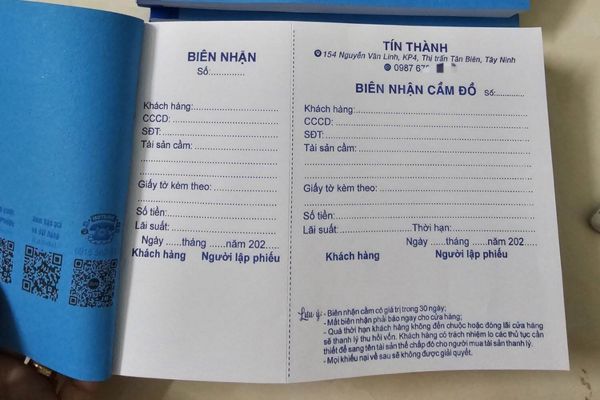 BIÊN NHẬN
Số:.............
Khách hàng:..............................
CCCD:..............................
SĐT:..............................
Tài sản cầm:..............................
Giấy tờ kèm theo:..............................
Số tiền:..............................
Lãi suất:..............................
Ngày ......tháng ......năm 202.....
Khách hàng Người lập phiếu
TÍN THÀNH
154 Nguyễn Văn Linh, KP4, Thị trấn Tân Biên, Tây Ninh
0987 6
BIÊN NHẬN CẦM ĐỒ Số:..........
Khách hàng:..............................
CCCD:..............................
SĐT:..............................
Tài sản cầm:..............................
Giấy tờ kèm theo:..............................
Số tiền:..............................
Lãi suất:.............................. Thời hạn:....................
Ngày ......tháng ......năm 202.....
Khách hàng Người lập phiếu
Lưu ý:
- Biên nhận cầm có giá trị trong 30 ngày;
- Mất biên nhận phải báo ngay cho cửa hàng;
- Quá thời hạn khách hàng không đến chuộc hoặc đóng lãi cửa hàng
sẽ thanh lý thu hồi vốn. Khách hàng có trách nhiệm lo các thủ tục cần
thiết để sang tên tài sản thế chấp đó cho người mua tài sản thanh lý.
- Mọi khiếu nại về sau sẽ không được giải quyết.